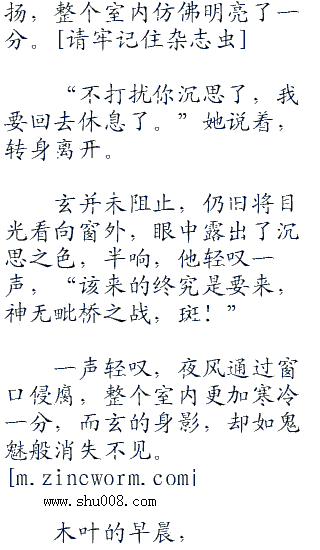 扬，整个室内仿佛明亮了一
分。[请牢记住杂志虫]
“不打扰你沉思了，我
要回去休息了。”她说着，
转身离开。
玄并未阻止，仍旧将目
光看向窗外，眼中露出了沉
思之色，半响，他轻叹一
声，“该来的终究是要来，
神无毗桥之战，斑！”
一声轻叹，夜风通过窗
口侵腐，整个室内更加寒冷
一分，而玄的身影，却如鬼
魅般消失不见。
[m.zincworm.com]
www.shu008.com
木叶的早晨，